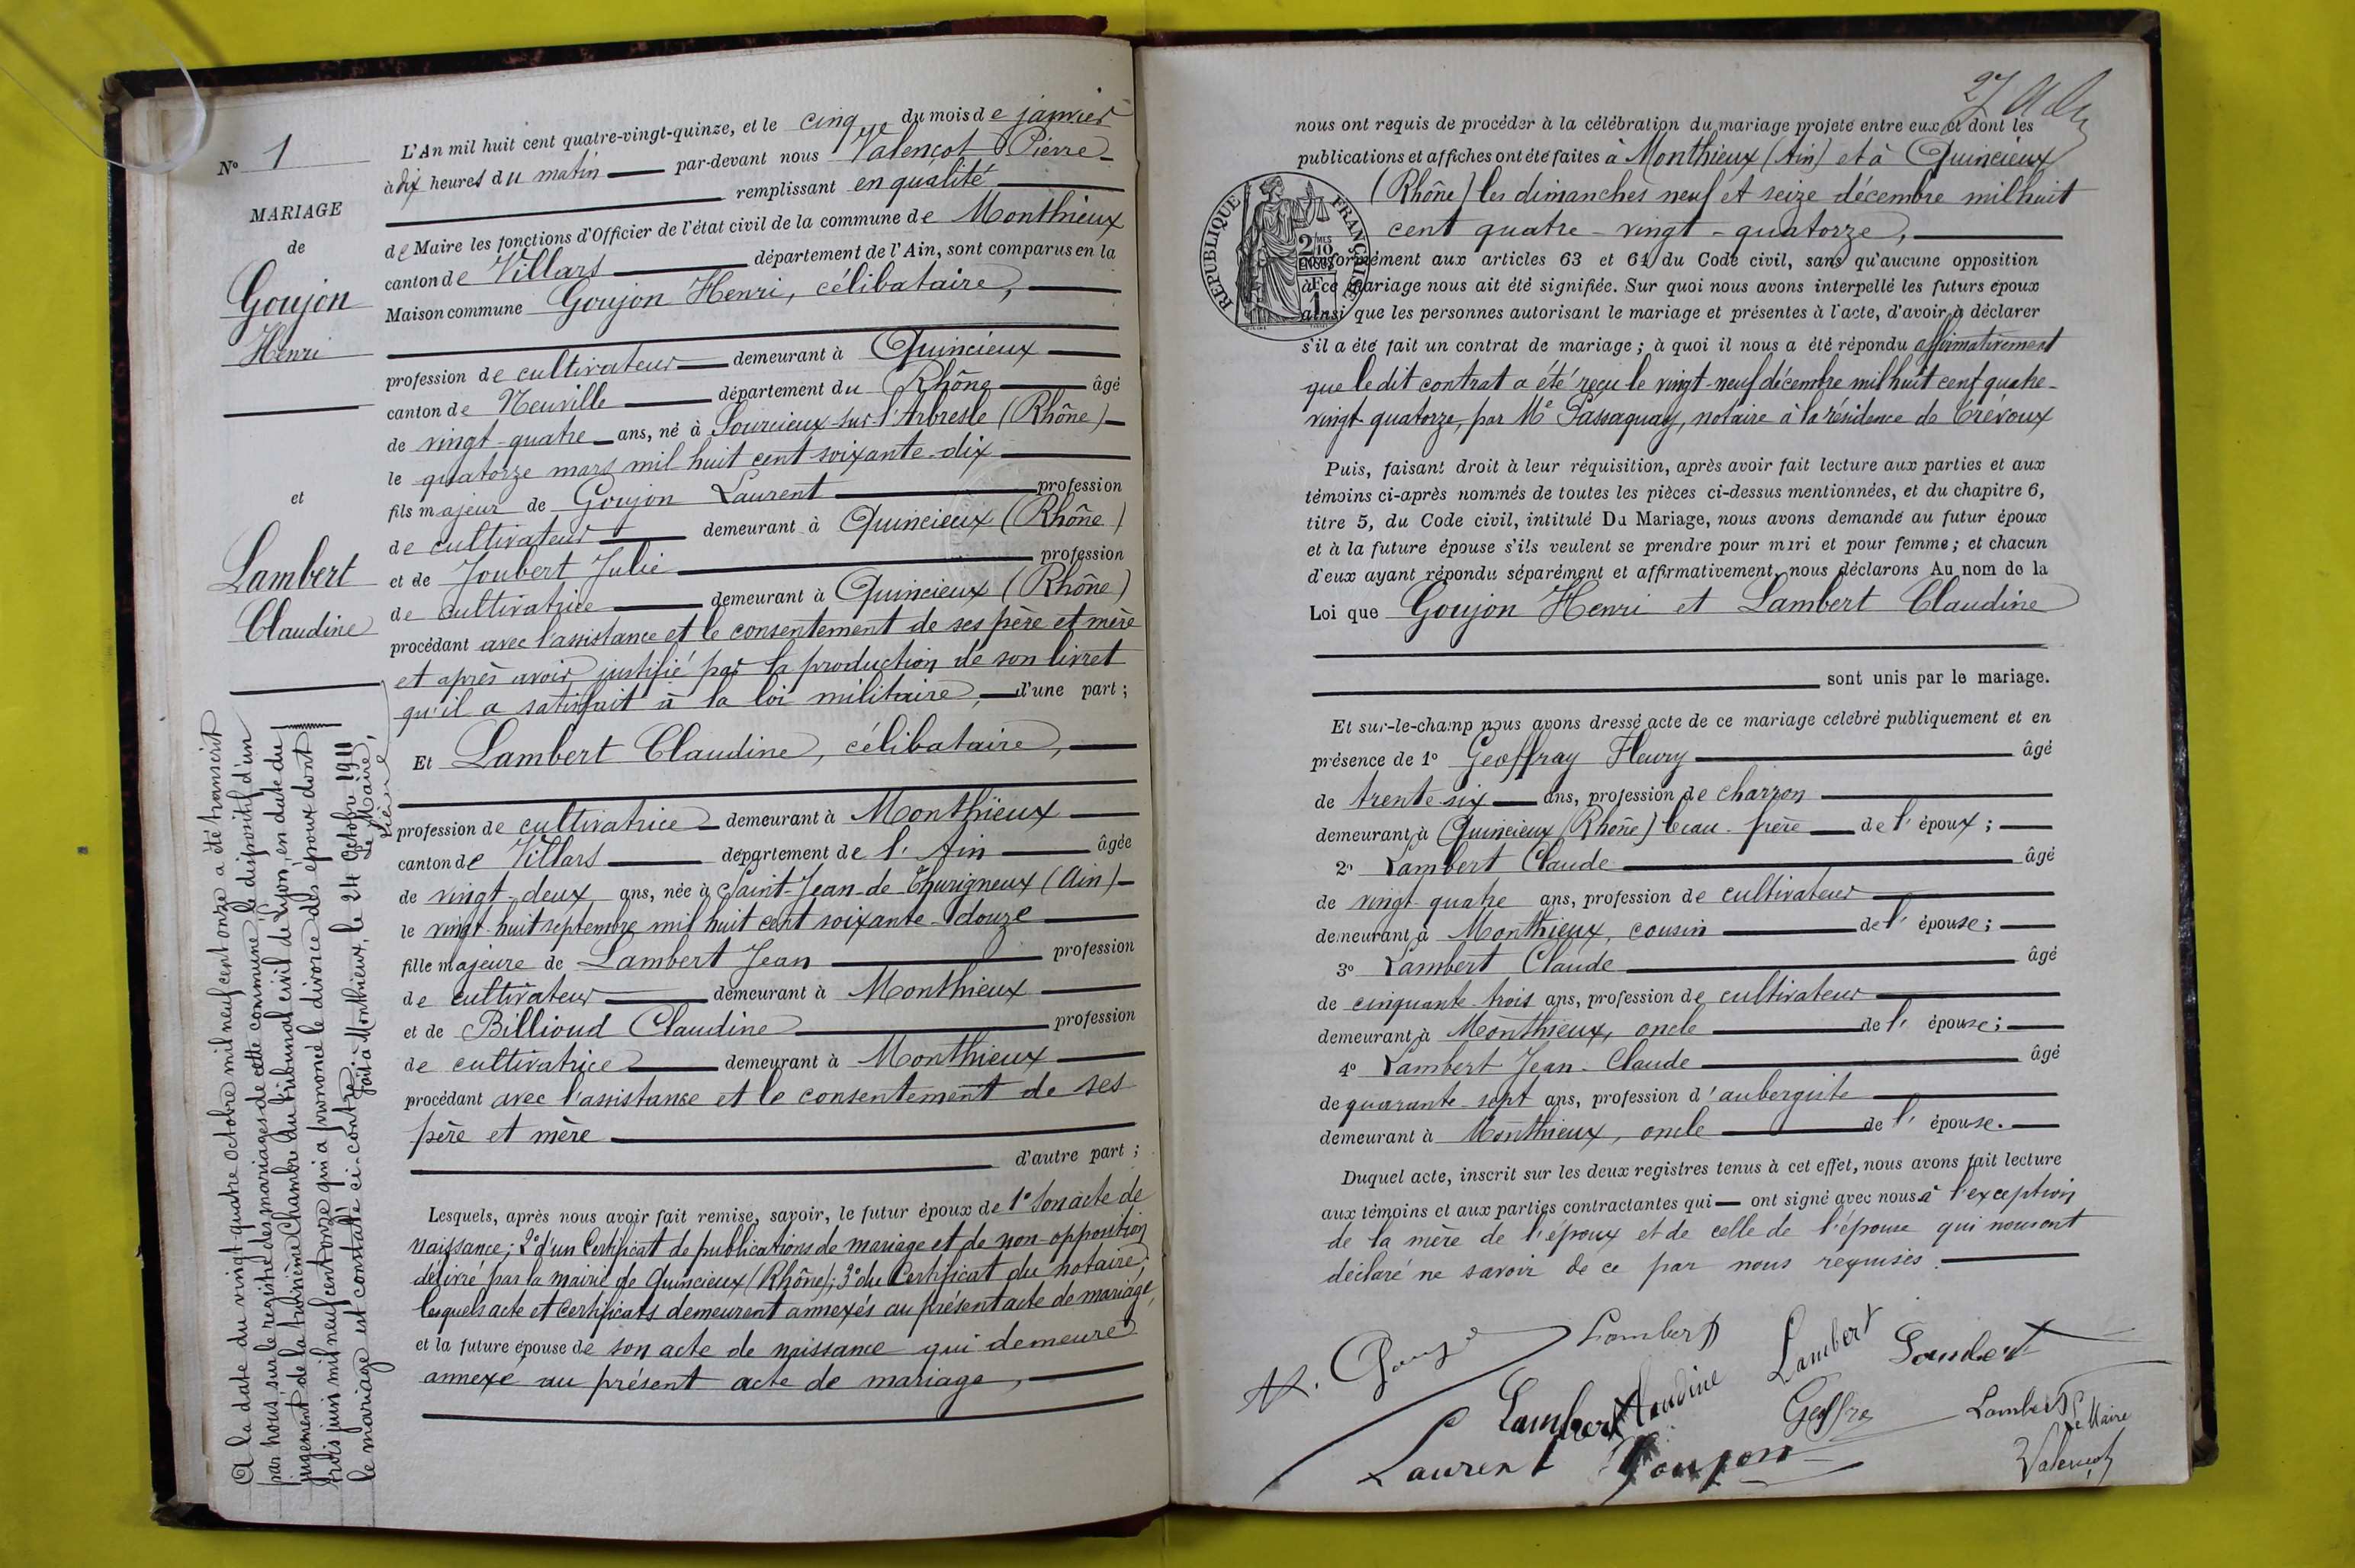 N° 1
MARIAGE
de
Goujon
Henri
et
Lambert
Claudine
A la date du vingt-quatre octobre mil neuf cent onze a été transcrit
par nous, sur le registre des mariages de cette commune, le dispositif d'un
jugement de la troisième Chambre du tribunal civil de Lyon, en date du
trois juin mil neuf cent onze qui a prononcé le divorce des époux dont
le mariage est constaté ci-contre. Fait à Monthieux, le 24 octobre 1911
Le Maire,
L'An mil huit cent quatre-vingt-quinze, et le cinq du mois de janvier
à dix heures du matin par-devant nous Valençot Pierre
remplissant en qualité
de Maire les fonctions d'Officier de l'état civil de la commune de Monthieux
canton de Villars département de l'Ain, sont comparus en la
Maison commune Goujon Henri, célibataire,
profession de cultivateur demeurant à Quincieux
canton de Neuville département du Rhône âgé
de vingt-quatre ans, né à Sourcieux-sur-l'Arbresle (Rhône)
le quatorze mars mil huit cent soixante-dix
fils majeur de Goujon Laurent profession
de cultivateur demeurant à Quincieux (Rhône)
et de Joubert Julie profession
de cultivatrice demeurant à Quincieux (Rhône)
procédant avec l'assistance et le consentement de ses père et mère
et après avoir justifié par la production de son livret
qu'il a satisfait à la loi militaire, d'une part ;
Et Lambert Claudine, célibataire,
profession de cultivatrice demeurant à Monthieux
canton de Villars département de l'Ain âgée
de vingt-deux ans, née à Saint-Jean-de-Thurigneux (Ain)
le vingt-huit septembre mil huit cent soixante-douze
fille majeure de Lambert Jean profession
de cultivateur demeurant à Monthieux
et de Billioud Claudine profession
de cultivatrice demeurant à Monthieux
procédant avec l'assistance et le consentement de ses
père et mère
d'autre part ;
Lesquels, après nous avoir fait remise, savoir, le futur époux de 1° Son acte de
naissance; 2° d'un Certificat de publications de mariage et de non-opposition
délivré par la mairie de Quincieux (Rhône); 3° du Certificat du notaire;
lesquels acte et certificats demeurent annexés au présent acte de mariage,
et la future épouse de son acte de naissance qui demeure
annexé au présent acte de mariage,
27
nous ont requis de procéder à la célébration du mariage projeté entre eux et dont les
publications et affiches ont été faites à Monthieux (Ain) et à Quincieux
(Rhône) les dimanches neuf et seize décembre mil huit
cent quatre-vingt-quatorze,
RÉPUBLIQUE FRANÇAISE
conformément aux articles 63 et 64 du Code civil, sans qu'aucune opposition
à ce mariage nous ait été signifiée. Sur quoi nous avons interpellé les futurs époux
ainsi que les personnes autorisant le mariage et présentes à l'acte, d'avoir à déclarer
s'il a été fait un contrat de mariage ; à quoi il nous a été répondu affirmativement
que le dit contrat a été reçu le vingt-neuf décembre mil huit cent quatre-
vingt quatorze, par Me Passaquay, notaire à la résidence de Trévoux
Puis, faisant droit à leur réquisition, après avoir fait lecture aux parties et aux
témoins ci-après nommés de toutes les pièces ci-dessus mentionnées, et du chapitre 6,
titre 5, du Code civil, intitulé Du Mariage, nous avons demandé au futur époux
et à la future épouse s'ils veulent se prendre pour mari et pour femme ; et chacun
d'eux ayant répondu séparément et affirmativement, nous déclarons Au nom de la
Loi que Goujon Henri et Lambert Claudine
sont unis par le mariage.
Et sur-le-champ nous avons dressé acte de ce mariage célébré publiquement et en
présence de 1° Geoffray Fleury âgé
de trente-six ans, profession de charron
demeurant à Quincieux (Rhône) beau-frère de l'époux ;
2° Lambert Claude âgé
de vingt-quatre ans, profession de cultivateur
demeurant à Monthieux, cousin de l'épouse ;
3° Lambert Claude âgé
de cinquante-trois ans, profession de cultivateur
demeurant à Monthieux, oncle de l'épouse ;
4° Lambert Jean-Claude âgé
de quarante-sept ans, profession d'aubergiste
demeurant à Monthieux, oncle de l'épouse.
Duquel acte, inscrit sur les deux registres tenus à cet effet, nous avons fait lecture
aux témoins et aux parties contractantes qui ont signé avec nous à l'exception
de la mère de l'époux et de celle de l'épouse qui nous ont
déclaré ne savoir de ce par nous requises.
Lambert Lambert Lambert
Lambert Claudine Lambert
Laurent Goujon Le Maire
Valençot